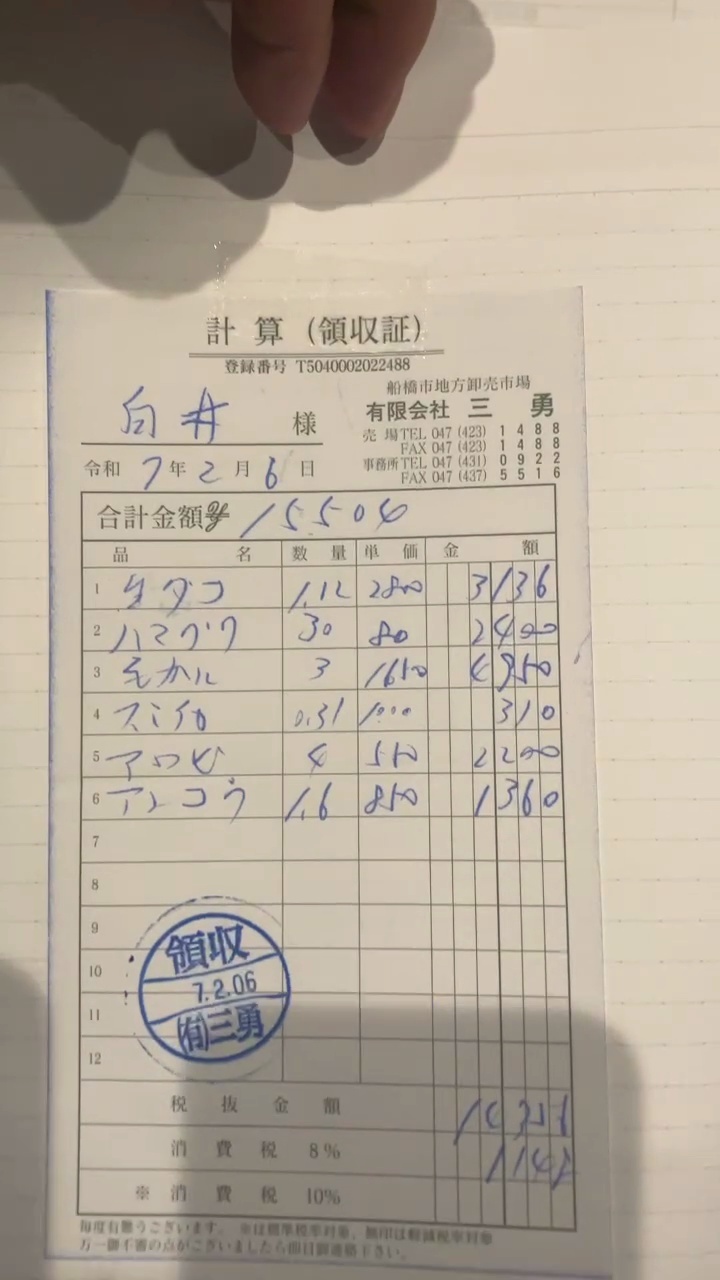 計算(領収証)
登録番号 T5040002022488
船橋市地方卸売市場
有限会社 三勇
白井 様
売場TEL 047 (423) 1488
FAX 047 (423) 1488
事務所TEL 047 (431) 0922
FAX 047 (437) 5516
令和 7年 2月 6日
合計金額 ¥ 15504
品名 数量 単価 金額
1 生ダコ 1.12 2800 3136
2 ハマグリ 30 80 2400
3 3 1650 4950
4 スミイカ 0.31 1000 310
5 アワビ 4 550 2200
6 アンコウ 1.6 850 1360
7
8
9
10
11
12
領収
7.2.06
㈲三勇
税抜金額 14356
消費税 8% 1148
※消費税 10%
毎度有難うございます。 ※は標準税率対象、無印は軽減税率対象
万一御不審の点がございましたら即日御連絡下さい。